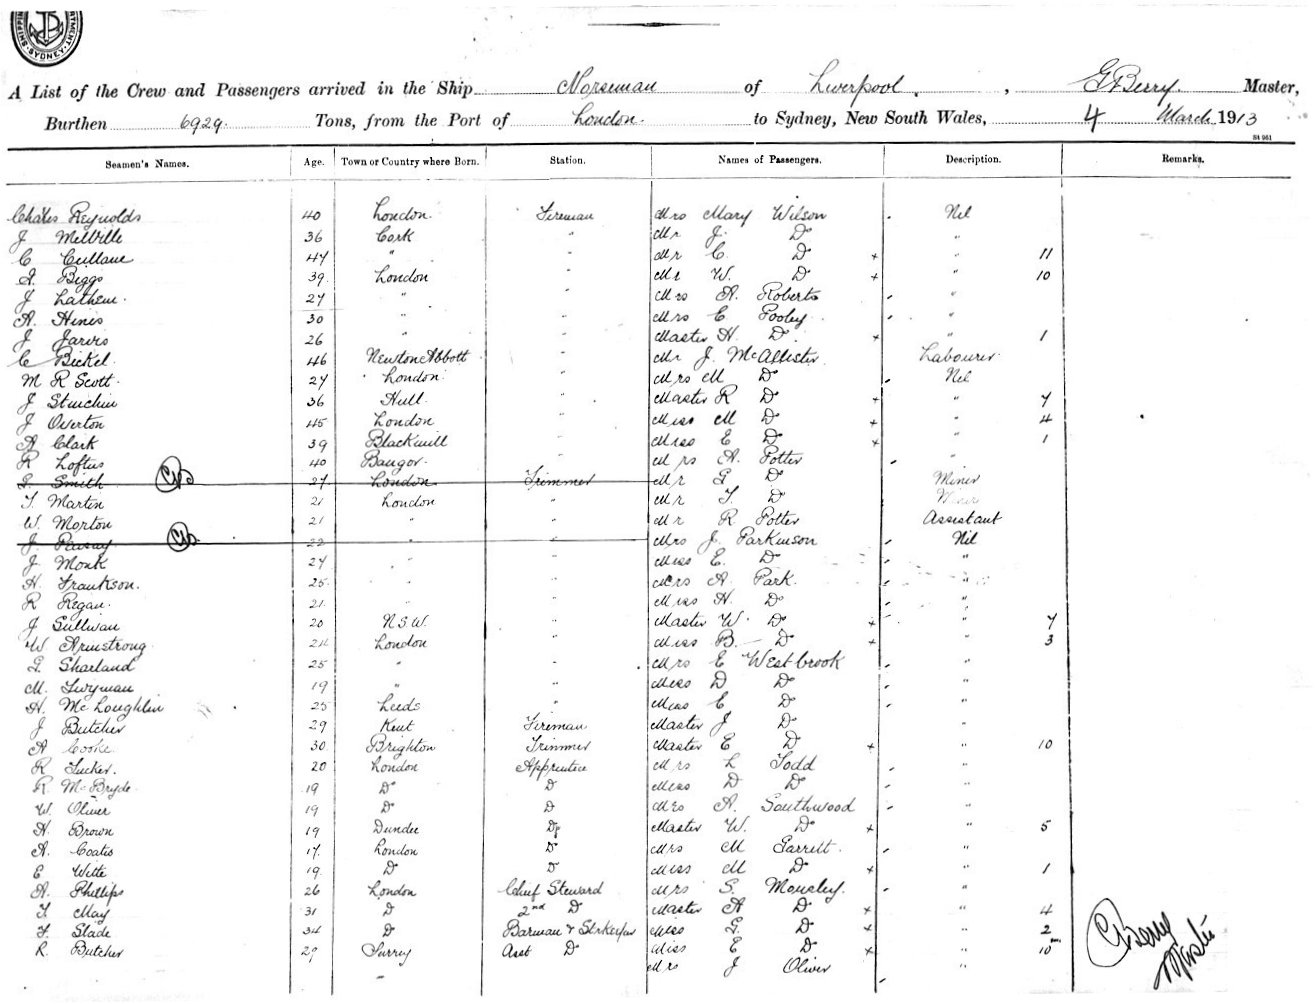 SYDNEY
A List of the Crew and Passengers arrived in the Ship Norseman of Liverpool, G Berry Master,
Burthen 6929 Tons, from the Port of London to Sydney, New South Wales, 4 March 1913
St 961
Seamen's Names. Age. Town or Country where Born. Station. Names of Passengers. Description. Remarks.
Chales Reynolds 40 London Fireman Mrs Mary Wilson Nil
J Melville 36 Cork " Mr J. Do "
C Cullane 44 " " Mr C. Do + " 11
Biggs 39 London " Mr W. Do + " 10
J Lathem 27 " " Mrs A. Roberts "
A. Hines 30 " " Mrs E Pooley "
J Jarvis 26 " " Master H Do + " 1
C Bickel 46 Newton Abbott " Mr J. McAllister Labourer
M R Scott 27 London " Mrs M Do Nil
J 36 Hull " Master R Do + " 7
J Overton 45 London " Miss M Do + " 4
A Clark 39 Blackwill " Miss E Do + " 1
R Loftus 40 Bangor " Mrs A. Potter "
Smith 27 London Trimmer Mr G Do Miner
T. Martin 21 London " Mr T. Do
W. Morton 21 " " Mr R Potter Assistant
J. 22 " " Mrs J. Parkinson Nil
J Monk 24 " " Miss E. Do "
H. Frankson 25 " " Mrs A. Park "
R Regan 21 " " Miss H. Do "
J Sullivan 20 N S W. " Master W. Do + " 7
W Armstrong London " Miss B. Do + " 3
G. Sharland 25 " " Mrs E Westbrook "
M. Twyman 19 " " Miss D Do "
H. McLoughlin 25 Leeds " Miss E Do "
J Butcher 29 Kent Fireman Master J Do "
A Cooke 30 Brighton Trimmer Master E Do + " 10
R Tucker. 20 London Apprentice Mrs L Todd "
R. McBryde 19 Do D Miss D Do "
W. Oliver 19 Do D Mrs A. Southwood "
H. Brown 19 Dundee Do Master W. Do + " 5
A. Coates 17 London D Mrs M Garrett "
E Witte 19 Do D Miss M Do + " 1
A. Phillips 26 London Chief Steward Mrs S. Mousley "
T. May 31 D 2nd D Master A Do + " 4
F. Slade 34 D Barman & Miss G. Do + " 2
R. Butcher 29 Surrey Asst D Miss E Do + " 10
" Mrs J Oliver "
G Berry
Master